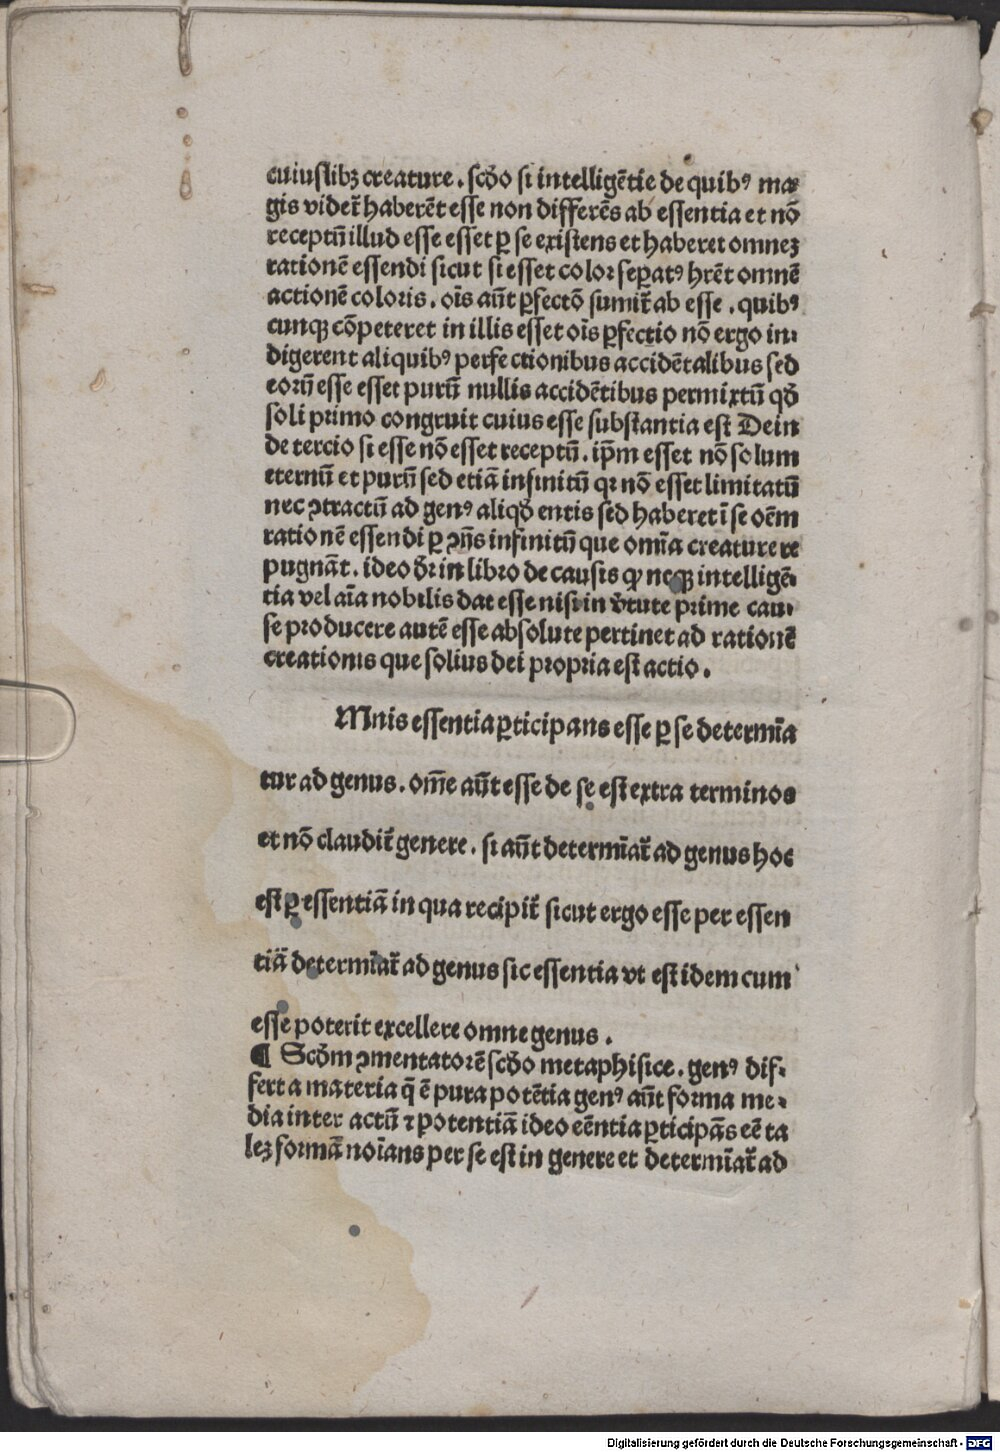 cuiuslibꝫ creature . scđo si intelligētie de quibꝰ ma⸗
gis vider̄ haberēt esse non differēs ab essentia et nō
receptū illud esse esset ꝑ se existens et haberet omneꝫ
rationē essendi sicut si esset color seꝑatꝰ hrēt omnē
actionē coloris . oīs aūt ꝑfectō sumit̄ ab esse . quibꝰ
cunqꝫ cōpeteret in illis esset oīs ꝑfectio nō ergo in⸗
digerent aliquibꝰ perfectionibus accidētalibus sed
eorū esse esset purū nullis accidētibus permixtū qđ
soli primo congruit cuius esse substantia est Dein
de tercio si esse nō esset receptū . ip̄m esset nō solum
eternū et purū sed etiā infinitū qꝛ nō esset limitatū
nec ꝯtractū ad genꝰ aliqđ entis sed haberet ī se oēm
rationē essendi ꝑ ꝯn̄s infinitū que om̄ia creature re
pugnāt . ideo dꝛ in libro de causis ꝙ neqꝫ intelligē⸗
tia vel aīa nobilis dat esse nisi in v̄tute prime cau⸗
se producere autē esse absolute pertinet ad rationē
creationis que solius dei propria est actio .
Mnis essentia ꝑticipans esse ꝑ se determīa
tur ad genus . om̄e aūt esse de se est extra terminos
et nō claudit̄ genere . si aūt determīat̄ ad genus hoc
est ꝑ essentiā in qua recipit̄ sicut ergo esse per essen
tiā determīat̄ ad genus sic essentia vt est idem cum
esse poterit excellere omne genus .
¶ Scđm ꝯmentatorē scđo metaphisice . genꝰ dif⸗
fert a materia q̄ ē pura potētia genꝰ aūt forma me⸗
dia inter actū ⁊ potentiā ideo eēntia ꝑticipās eē ta
leꝫ formā noīans per se est in genere et determīat̄ ad
Digitalisierung gefördert durch die Deutsche Forschungsgemeinschaft - DFG